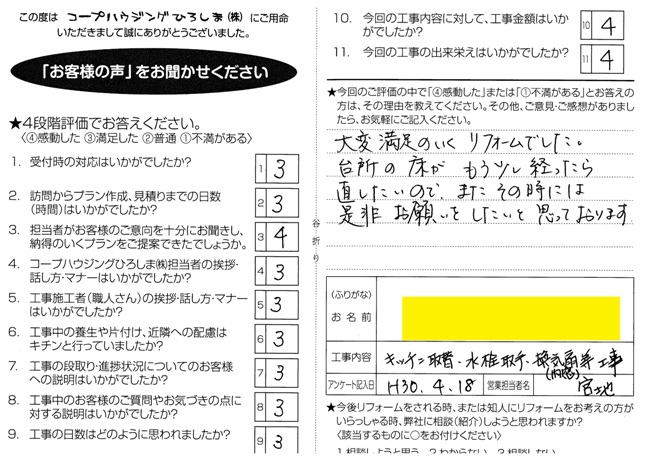 この度は コープハウジングひろしま(株) にご用命
いただきまして誠にありがとうございました。
「お客様の声」をお聞かせください
★4段階評価でお答えください。
〈④感動した ③満足した ②普通 ①不満がある〉
1. 受付時の対応はいかがでしたか? 1 3
2. 訪問からプラン作成、見積りまでの日数
(時間)はいかがでしたか? 2 3
3. 担当者がお客様のご意向を十分にお聞きし、
納得のいくプランをご提案できたでしょうか。 3 4
4. コープハウジングひろしま㈱担当者の挨拶・
話し方・マナーはいかがでしたか? 4 3
5. 工事施工者(職人さん)の挨拶・話し方・マナー
はいかがでしたか? 5 3
6. 工事中の養生や片付け、近隣への配慮は
キチンと行っていましたか? 6 3
7. 工事の段取り・進捗状況についてのお客様
への説明はいかがでしたか? 7 3
8. 工事中のお客様のご質問やお気づきの点に
対する説明はいかがでしたか? 8 3
9. 工事の日数はどのように思われましたか? 9 3
谷折り
10. 今回の工事内容に対して、工事金額はいか
がでしたか? 10 4
11. 今回の工事の出来栄えはいかがでしたか? 11 4
★今回のご評価の中で「④感動した」または「①不満がある」とお答え
の方は、その理由を教えてください。その他、ご意見・ご感想がありまし
たら、お気軽にご記入ください。
大変満足のいくリフォームでした。
台所の床がもう少し経ったら
直したいので、またその時には
是非お願いをしたいと思っております
(ふりがな)
お名前
工事内容 キッチン取替・水栓取手・換気扇等工事
アンケート記入日 H30.4.18 営業担当者名 宮地
★今後リフォームをされる時、または知人にリフォームをお考えの方が
いらっしゃる時、弊社に相談(紹介)しようと思いますか?
〈該当するものに○をお付けください〉
1.相談しようと思う 2.わからない 3.相談しない